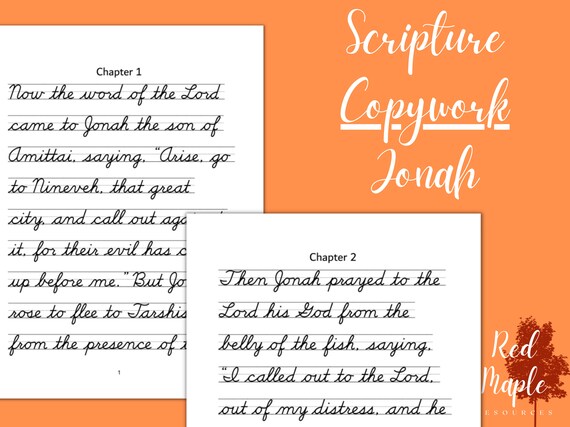 Chapter 1
Now the word of the Lord
came to Jonah the son of
Amittai, saying, "Arise, go
to Nineveh, that great
city, and call out
it, for their evil has
up before me." But
rose to flee to Tarshis
from the presence of
1
Chapter 2
Then Jonah prayed to the
Lord his God from the
belly of the fish, saying,
"I called out to the Lord,
out of my distress, and he
Scripture
Copywork
Jonah
Red
Maple
RESOURCES